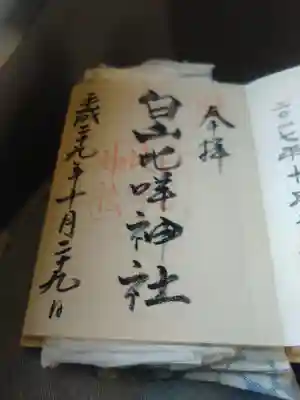 奉拝
白山比咩神社
平成二十九年十月二十九日
二〇一七年十